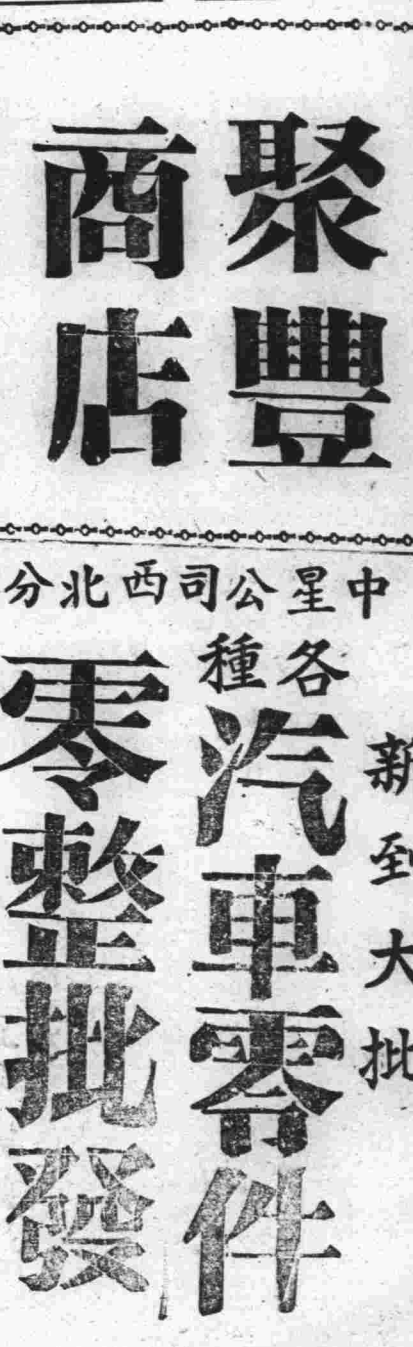 聚豐
商店
中星公司西北分
新到大批
各種
汽車零件
零整批發